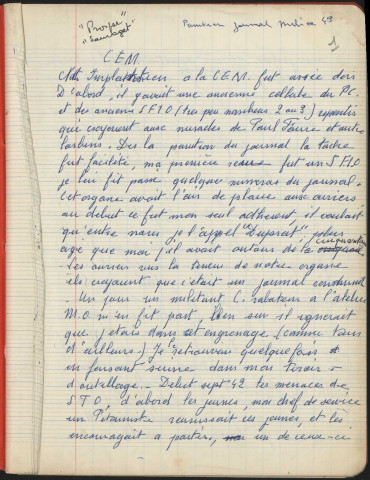 "Prosper"
"Sauvaget"
Parution journal
1
C.E.M.
Implantation a la C.E.M. fut assée
D'abord, il y avait une ancienne cellule du P.C.
et des anciens S.F.I.O (très peu nombreux 2 ou 3) repentis
qui croyaient aux miracles de Paul Faure et autre
larbins. Dès la parution du journal la tâche
fut facilité, ma première recrue fut un S.F.I.O
je lui fit passé quelque numéros du journal.
Cet organe avait l'air de plaire aux ouvriers
au début ce fut mon seul adhérent, il voulait
qu'entre nous je l'appel "Duprat" plus
agé que moi il avait autour de la cinquantaine
Les ouvriers vus la teneur de notre organe
ils croyaient que c'était un journal communiste
Un jour un militant C. rabateur a l'atelier
M.O. m'en fit part, bien sur il ignorait
que j'étais dans cet engrenage (comme tous
d'ailleurs). Je le retrouvais quelquefois
en faisant suivre dans mon tiroir
d'outillage. - Début sept 42 les menaces de
S.T.O, d'abord les jeunes, mon chef de service
un Pétainiste réunissait ces jeunes, et les
encourageait a partir, un de ceux-ci